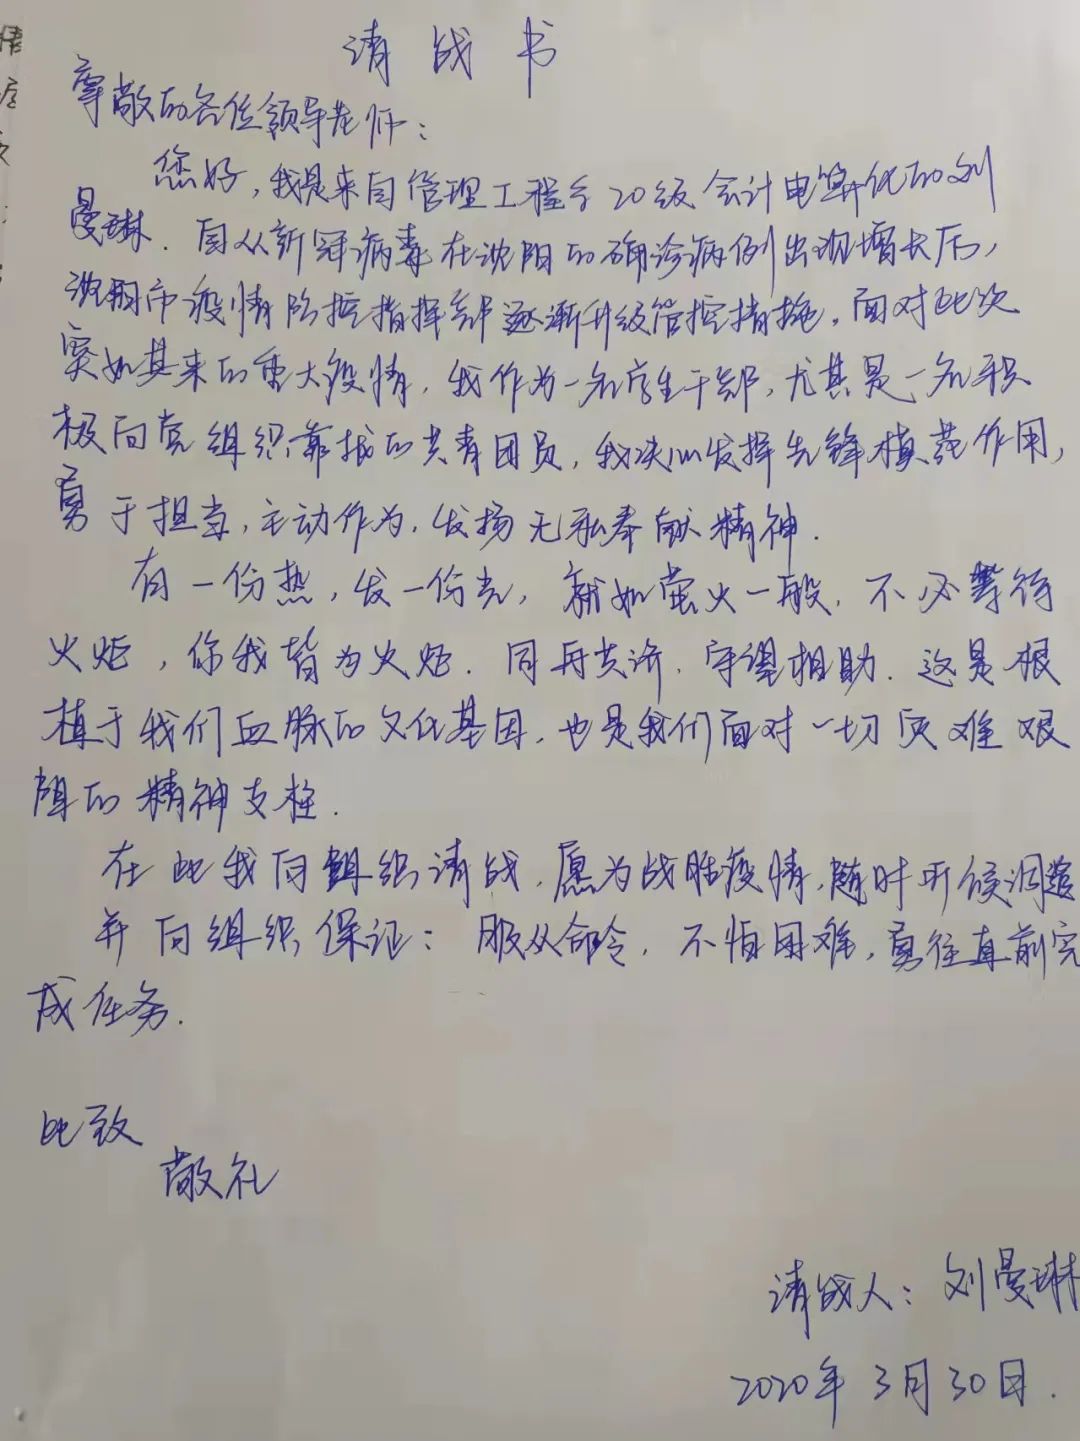 请战书
尊敬的各位领导老师：
您好，我是来自管理工程系20级会计电算化的刘
曼琳．自从新冠病毒在沈阳的确诊病例出现增长后，
沈阳市疫情防控指挥部逐渐升级管控措施．面对此次
突如其来的重大疫情，我作为一名学生干部，尤其是一名积
极向党组织靠拢的共青团员，我决心发挥先锋模范作用，
勇于担当，主动作为，发扬无私奉献精神．
有一份热，发一份光，就如萤火一般．不必等待
火炬，你我皆为火炬．同舟共济．守望相助．这是根
植于我们血脉的文化基因，也是我们面对一切灾难艰
阻的精神支柱．
在此我向组织请战，愿为战胜疫情，随时听候调遣
并向组织保证：服从命令，不怕困难，勇往直前完
成任务．
此致
敬礼
请战人：刘曼琳
2020年3月30日．